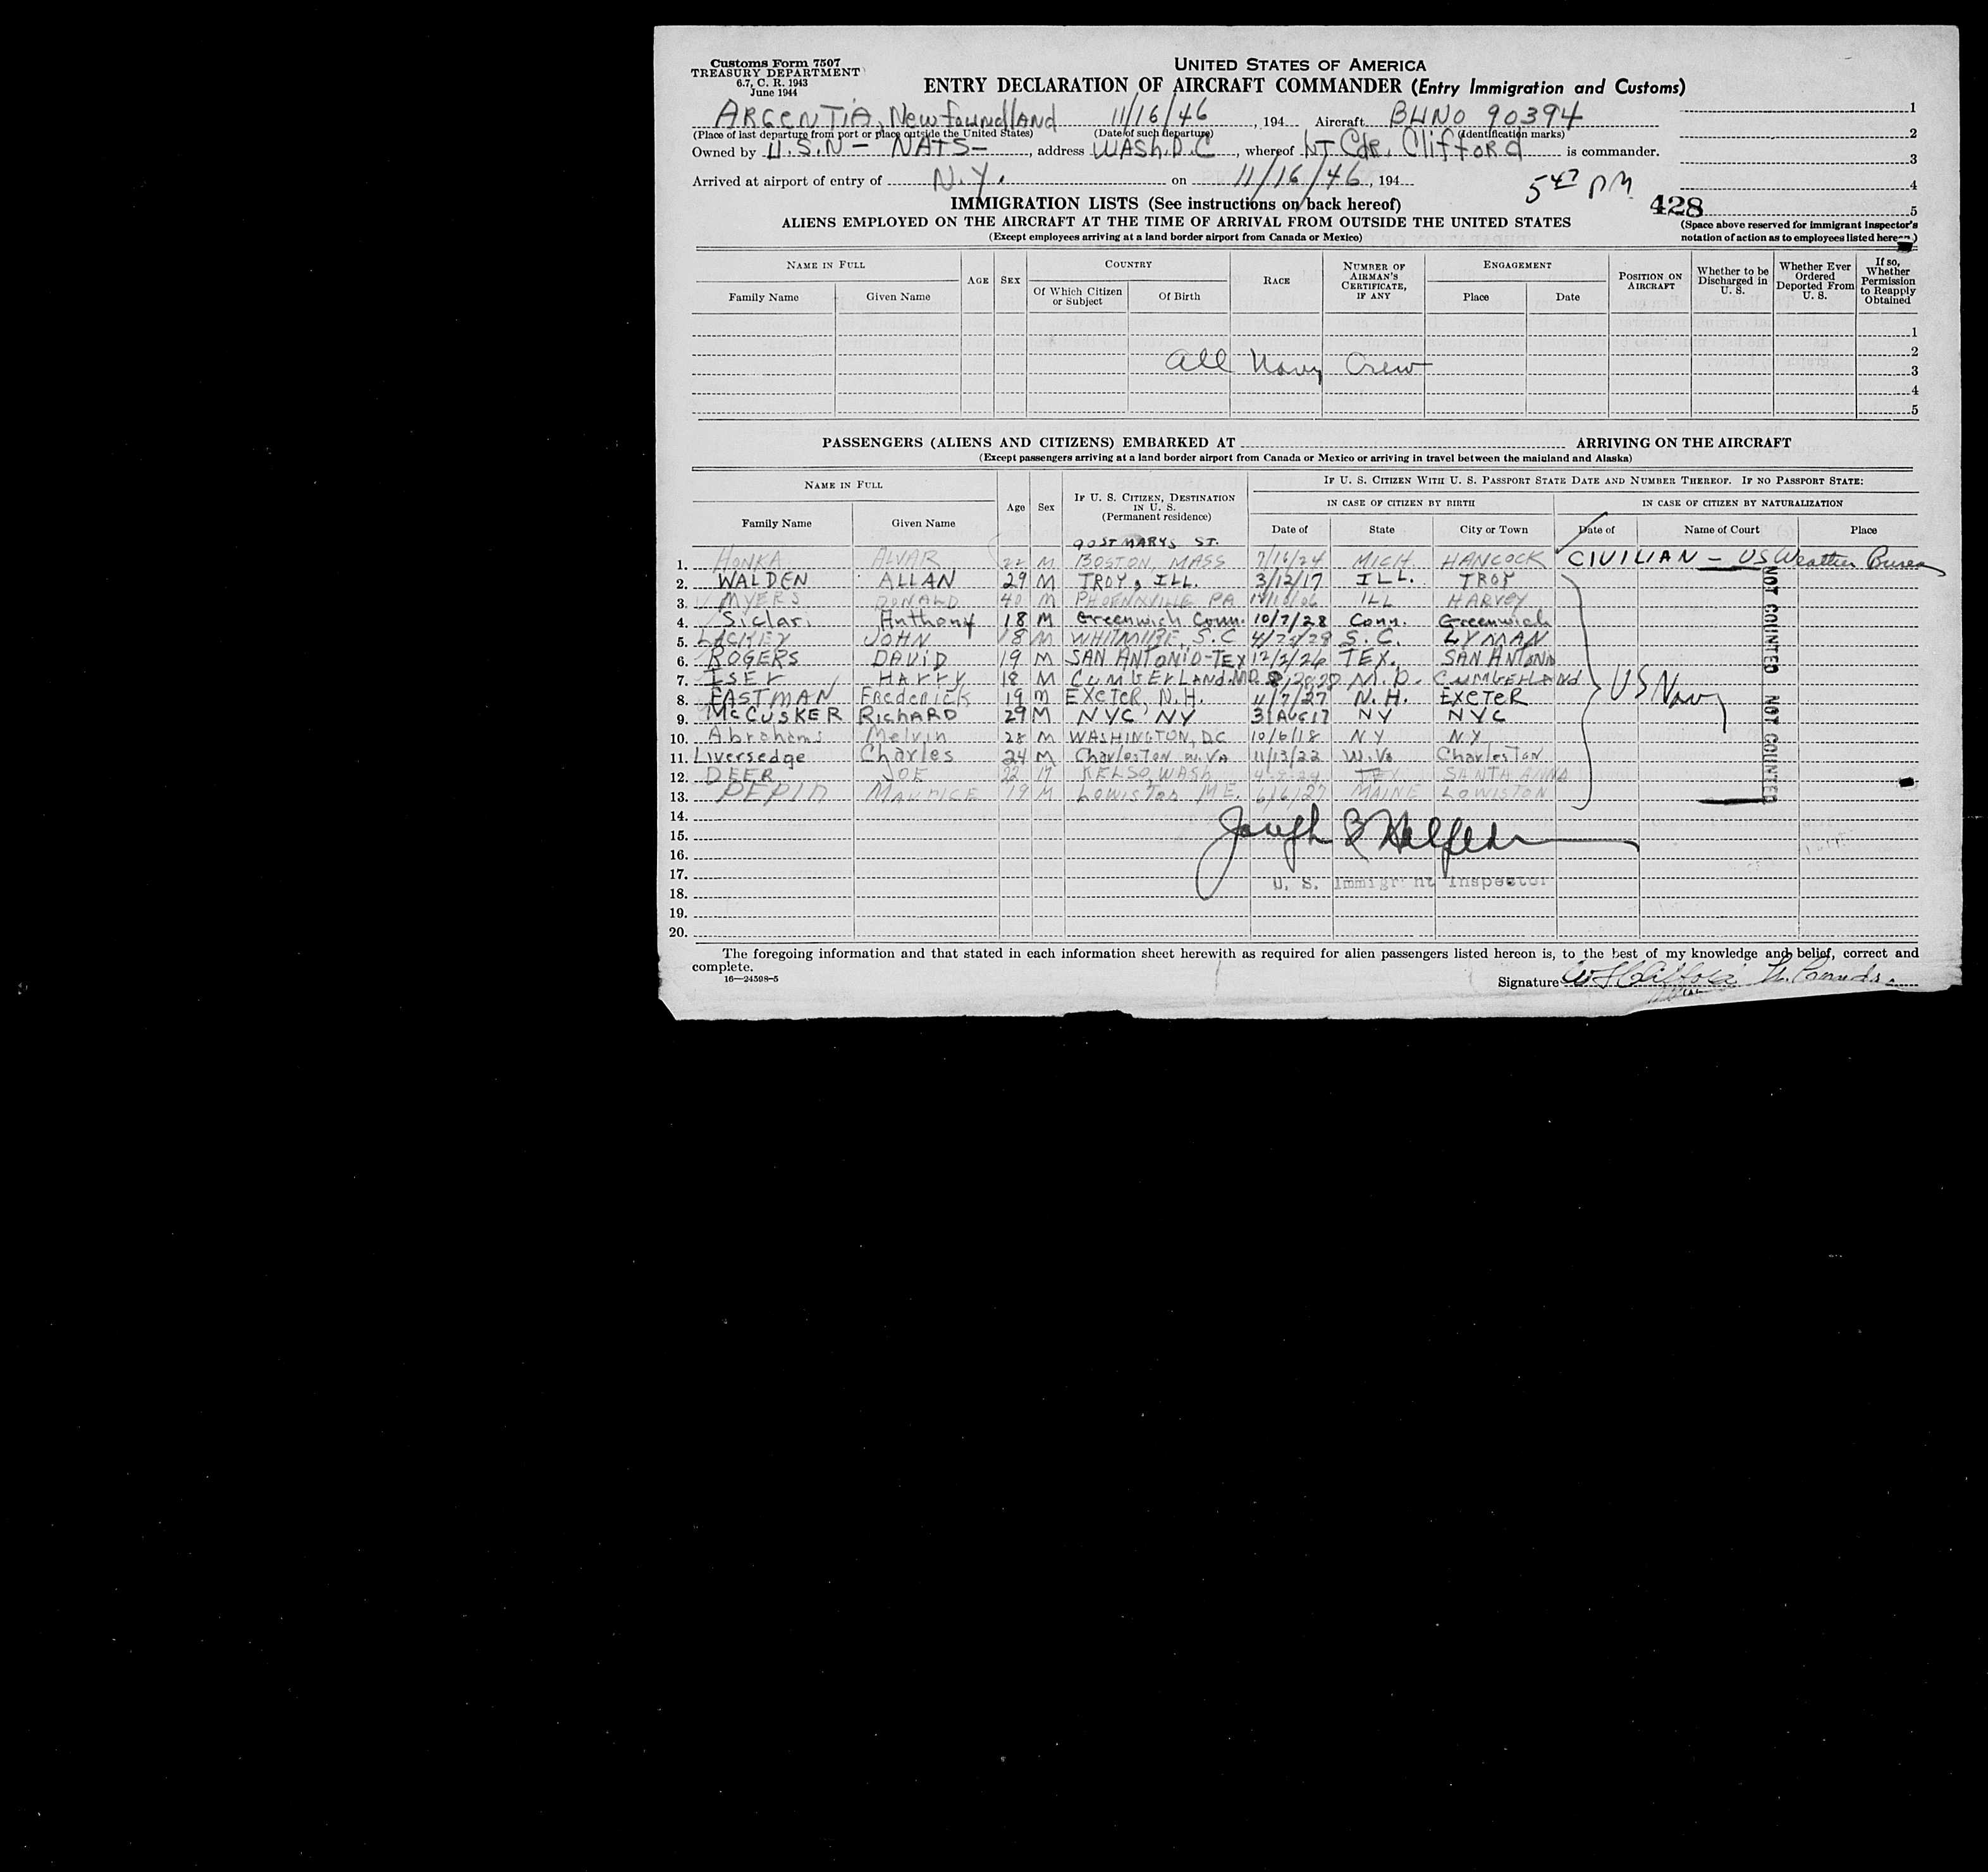 Customs Form 7507
TREASURY DEPARTMENT
6.7, C. R. 1943
June 1944
UNITED STATES OF AMERICA
ENTRY DECLARATION OF AIRCRAFT COMMANDER (Entry Immigration and Customs)
ARGENTIA, Newfoundland 11/16/46, 194 Aircraft BUNO 90394 1
(Place of last departure from port or place outside the United States) (Date of such departure) (Identification marks) 2
Owned by U.S.N - NATS -, address WASH. D.C, whereof LT Cdr. Clifford is commander. 3
Arrived at airport of entry of N.Y. on 11/16/46, 194 4
547 PM
IMMIGRATION LISTS (See instructions on back hereof) 428 5
ALIENS EMPLOYED ON THE AIRCRAFT AT THE TIME OF ARRIVAL FROM OUTSIDE THE UNITED STATES
(Except employees arriving at a land border airport from Canada or Mexico)
(Space above reserved for immigrant inspector's notation of action as to employees listed hereon.)
NAME IN FULL AGE SEX COUNTRY RACE NUMBER OF AIRMAN'S CERTIFICATE, IF ANY ENGAGEMENT POSITION ON AIRCRAFT Whether to be Discharged in U. S. Whether Ever Ordered Deported From U. S. If so, Whether Permission to Reapply Obtained
Family Name Given Name Of Which Citizen or Subject Of Birth Place Date
1
2
All Navy Crew 3
4
5
PASSENGERS (ALIENS AND CITIZENS) EMBARKED AT ARRIVING ON THE AIRCRAFT
(Except passengers arriving at a land border airport from Canada or Mexico or arriving in travel between the mainland and Alaska)
NAME IN FULL Age Sex IF U. S. CITIZEN, DESTINATION IN U. S. (Permanent residence) IF U. S. CITIZEN WITH U. S. PASSPORT STATE DATE AND NUMBER THEREOF. IF NO PASSPORT STATE:
IN CASE OF CITIZEN BY BIRTH IN CASE OF CITIZEN BY NATURALIZATION
Family Name Given Name Date of State City or Town Date of Name of Court Place
90 ST MARYS ST.
1. HONKA ALVAR 22 M BOSTON, MASS 7/16/24 MICH HANCOCK CIVILIAN - US Weather Bureau
2. WALDEN ALLAN 29 M TROY, ILL. 3/12/17 ILL. TROY
3. MYERS DONALD 40 M PHOENIXVILLE PA ILL HARVEY
4. Siclari Anthony 18 M Greenwich Conn. 10/7/28 Conn. Greenwich
5. LACKEY JOHN 18 M WHITMIRE, S.C S.C. LYMAN
6. ROGERS DAVID 19 M SAN ANTONIO-TEX TEX. SAN ANTONIO
7. ISER HARRY 18 M CUMBERLAND.MD M.D. CUMBERLAND
US Navy
8. EASTMAN FREDERICK 19 M EXETER, N.H. 11/7/27 N.H. EXETER
9. McCUSKER RICHARD 29 M NYC NY 31 AUG 17 NY NYC
10. Abrahams Melvin 28 M WASHINGTON, DC 10/6/18 NY NY
11. Liversedge Charles 24 M Charleston W.VA 11/13/22 W.Va Charleston
12. DEER JOE 22 M KELSO, WASH TEX SANTA ANNA
13. PEPIN MAURICE 19 M LOWISTON ME. 6/6/27 MAINE LOWISTON
NOT COUNTED NOT COUNTED
14.
15.
16.
17.
U. S. Immigrant Inspector
18.
19.
20.
The foregoing information and that stated in each information sheet herewith as required for alien passengers listed hereon is, to the best of my knowledge and belief, correct and
complete.
16—24598-5
Signature